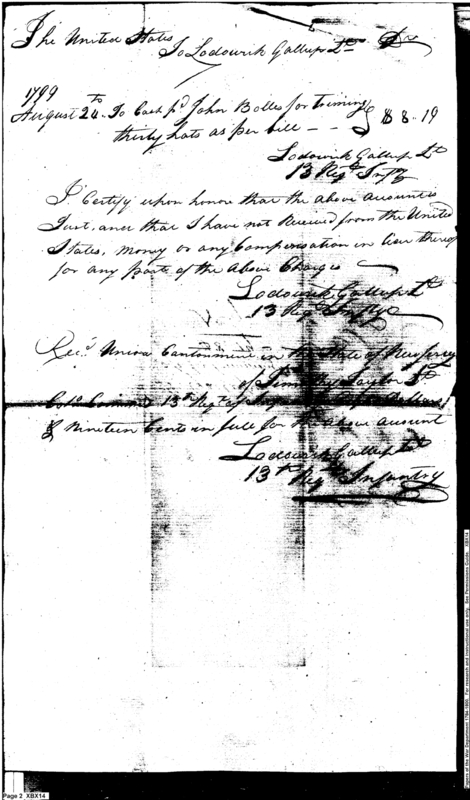 The United States
To Lodowick Gallup Lt Dr
1799
August 24th To Cash pd John Bolles for triming
thirty hats as per bill — — } $ 8 . 19
Lodowick Gallup Lt
13 Regt Infy
I Certify upon honor that the above account is
Just, and that I have not Received from the United
States, money or any Compensation in lieu thereof
for any part of the above Charges
Lodowick Gallup Lt
13 Regt Infy
Recd Union Cantonment in the State of New Jersey
of Timothy Taylor
Colo Commt 13th Regt of
& Nineteen Cents in full for the above account
Lodowick Gallup Lt
13th Regt Infantry
Page 2 XBX14
Papers of the War Department 1784-1800. For research and instructional use only. See Permissions Guide. XBX14